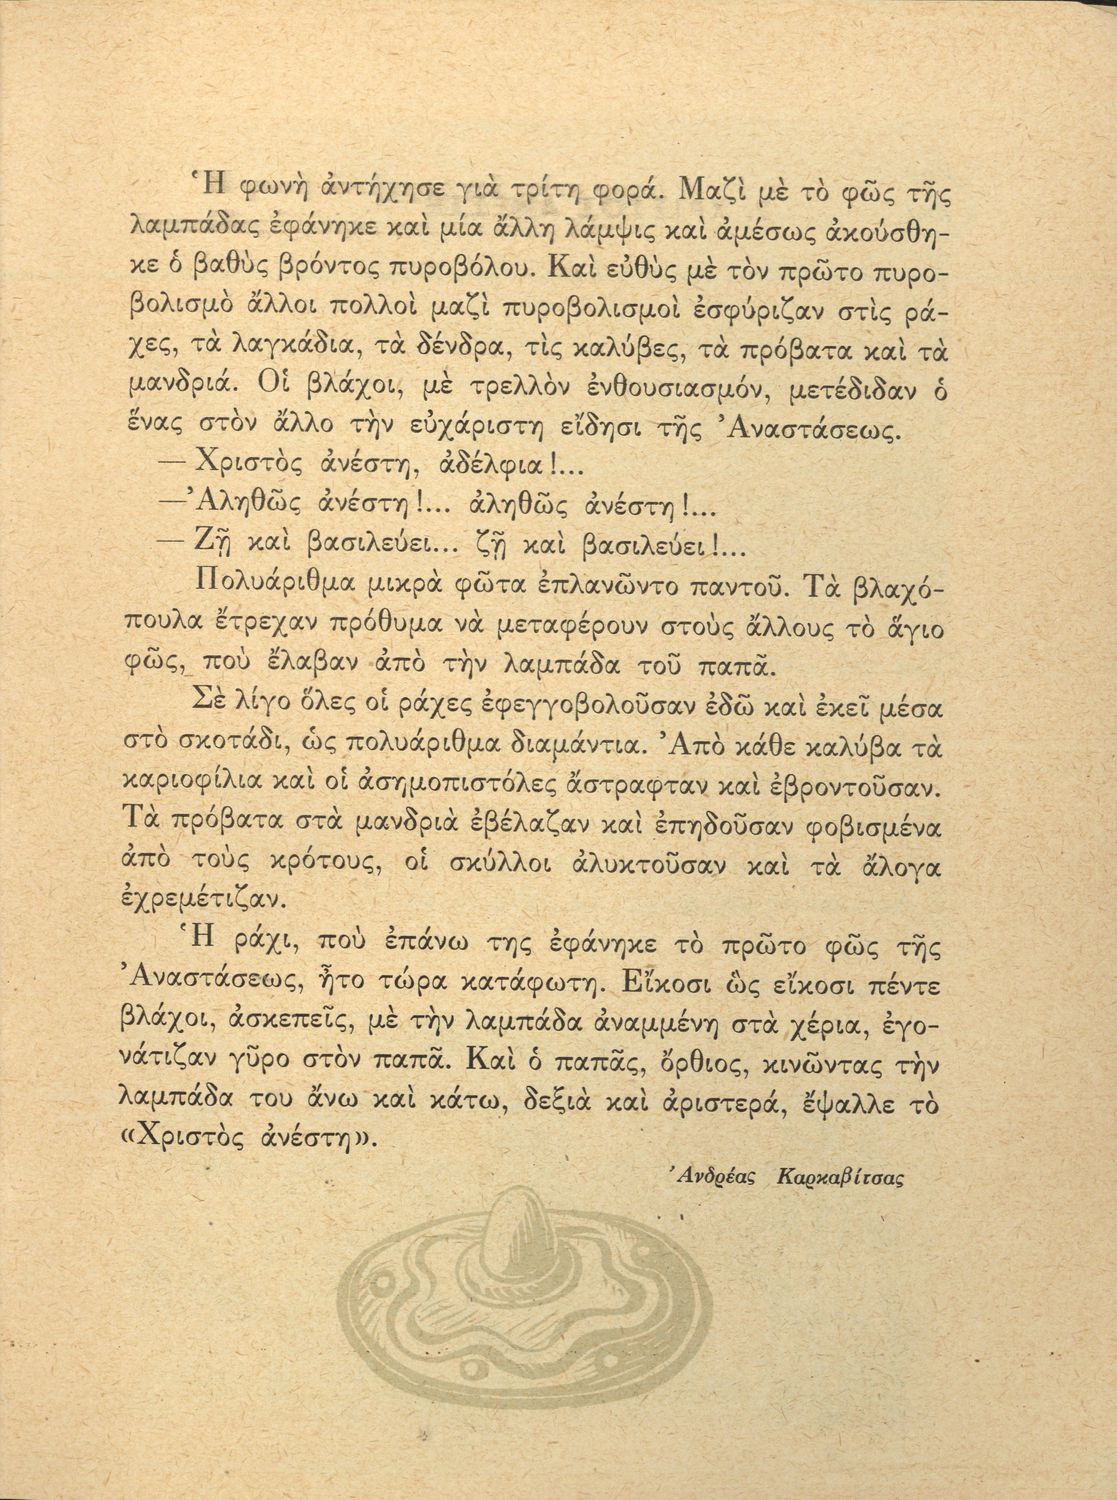 Ἡ φωνὴ ἀντήχησε γιὰ τρίτη φορά. Μαζὶ μὲ τὸ φῶς τῆς
λαμπάδας ἐφάνηκε καὶ μία ἄλλη λάμψις καὶ ἀμέσως ἀκούσθη-
κε ὁ βαθὺς βρόντος πυροβόλου. Καὶ εὐθὺς μὲ τὸν πρῶτο πυρο-
βολισμὸ ἄλλοι πολλοὶ μαζὶ πυροβολισμοὶ ἐσφύριζαν στὶς ρά-
χες, τὰ λαγκάδια, τὰ δένδρα, τὶς καλύβες, τὰ πρόβατα καὶ τὰ
μανδριά. Οἱ βλάχοι, μὲ τρελλὸν ἐνθουσιασμόν, μετέδιδαν ὁ
ἕνας στὸν ἄλλο τὴν εὐχάριστη εἴδησι τῆς Ἀναστάσεως.
— Χριστὸς ἀνέστη, ἀδέλφια!...
—Ἀληθῶς ἀνέστη!... ἀληθῶς ἀνέστη!...
— Ζῇ καὶ βασιλεύει... ζῇ καὶ βασιλεύει!...
Πολυάριθμα μικρὰ φῶτα ἐπλανῶντο παντοῦ. Τὰ βλαχό-
πουλα ἔτρεχαν πρόθυμα νὰ μεταφέρουν στοὺς ἄλλους τὸ ἅγιο
φῶς, ποὺ ἔλαβαν ἀπὸ τὴν λαμπάδα τοῦ παπᾶ.
Σὲ λίγο ὅλες οἱ ράχες ἐφεγγοβολοῦσαν ἐδῶ καὶ ἐκεῖ μέσα
στὸ σκοτάδι, ὡς πολυάριθμα διαμάντια. Ἀπὸ κάθε καλύβα τὰ
καριοφίλια καὶ οἱ ἀσημοπιστόλες ἄστραφταν καὶ ἐβροντοῦσαν.
Τὰ πρόβατα στὰ μανδριὰ ἐβέλαζαν καὶ ἐπηδοῦσαν φοβισμένα
ἀπὸ τοὺς κρότους, οἱ σκύλλοι ἀλυκτοῦσαν καὶ τὰ ἄλογα
ἐχρεμέτιζαν.
Ἡ ράχι, ποὺ ἐπάνω της ἐφάνηκε τὸ πρῶτο φῶς τῆς
Ἀναστάσεως, ἦτο τώρα κατάφωτη. Εἴκοσι ὣς εἴκοσι πέντε
βλάχοι, ἀσκεπεῖς, μὲ τὴν λαμπάδα ἀναμμένη στὰ χέρια, ἐγο-
νάτιζαν γῦρο στὸν παπᾶ. Καὶ ὁ παπᾶς, ὄρθιος, κινῶντας τὴν
λαμπάδα του ἄνω καὶ κάτω, δεξιὰ καὶ ἀριστερά, ἔψαλλε τὸ
«Χριστὸς ἀνέστη».
Ἀνδρέας Καρκαβίτσας